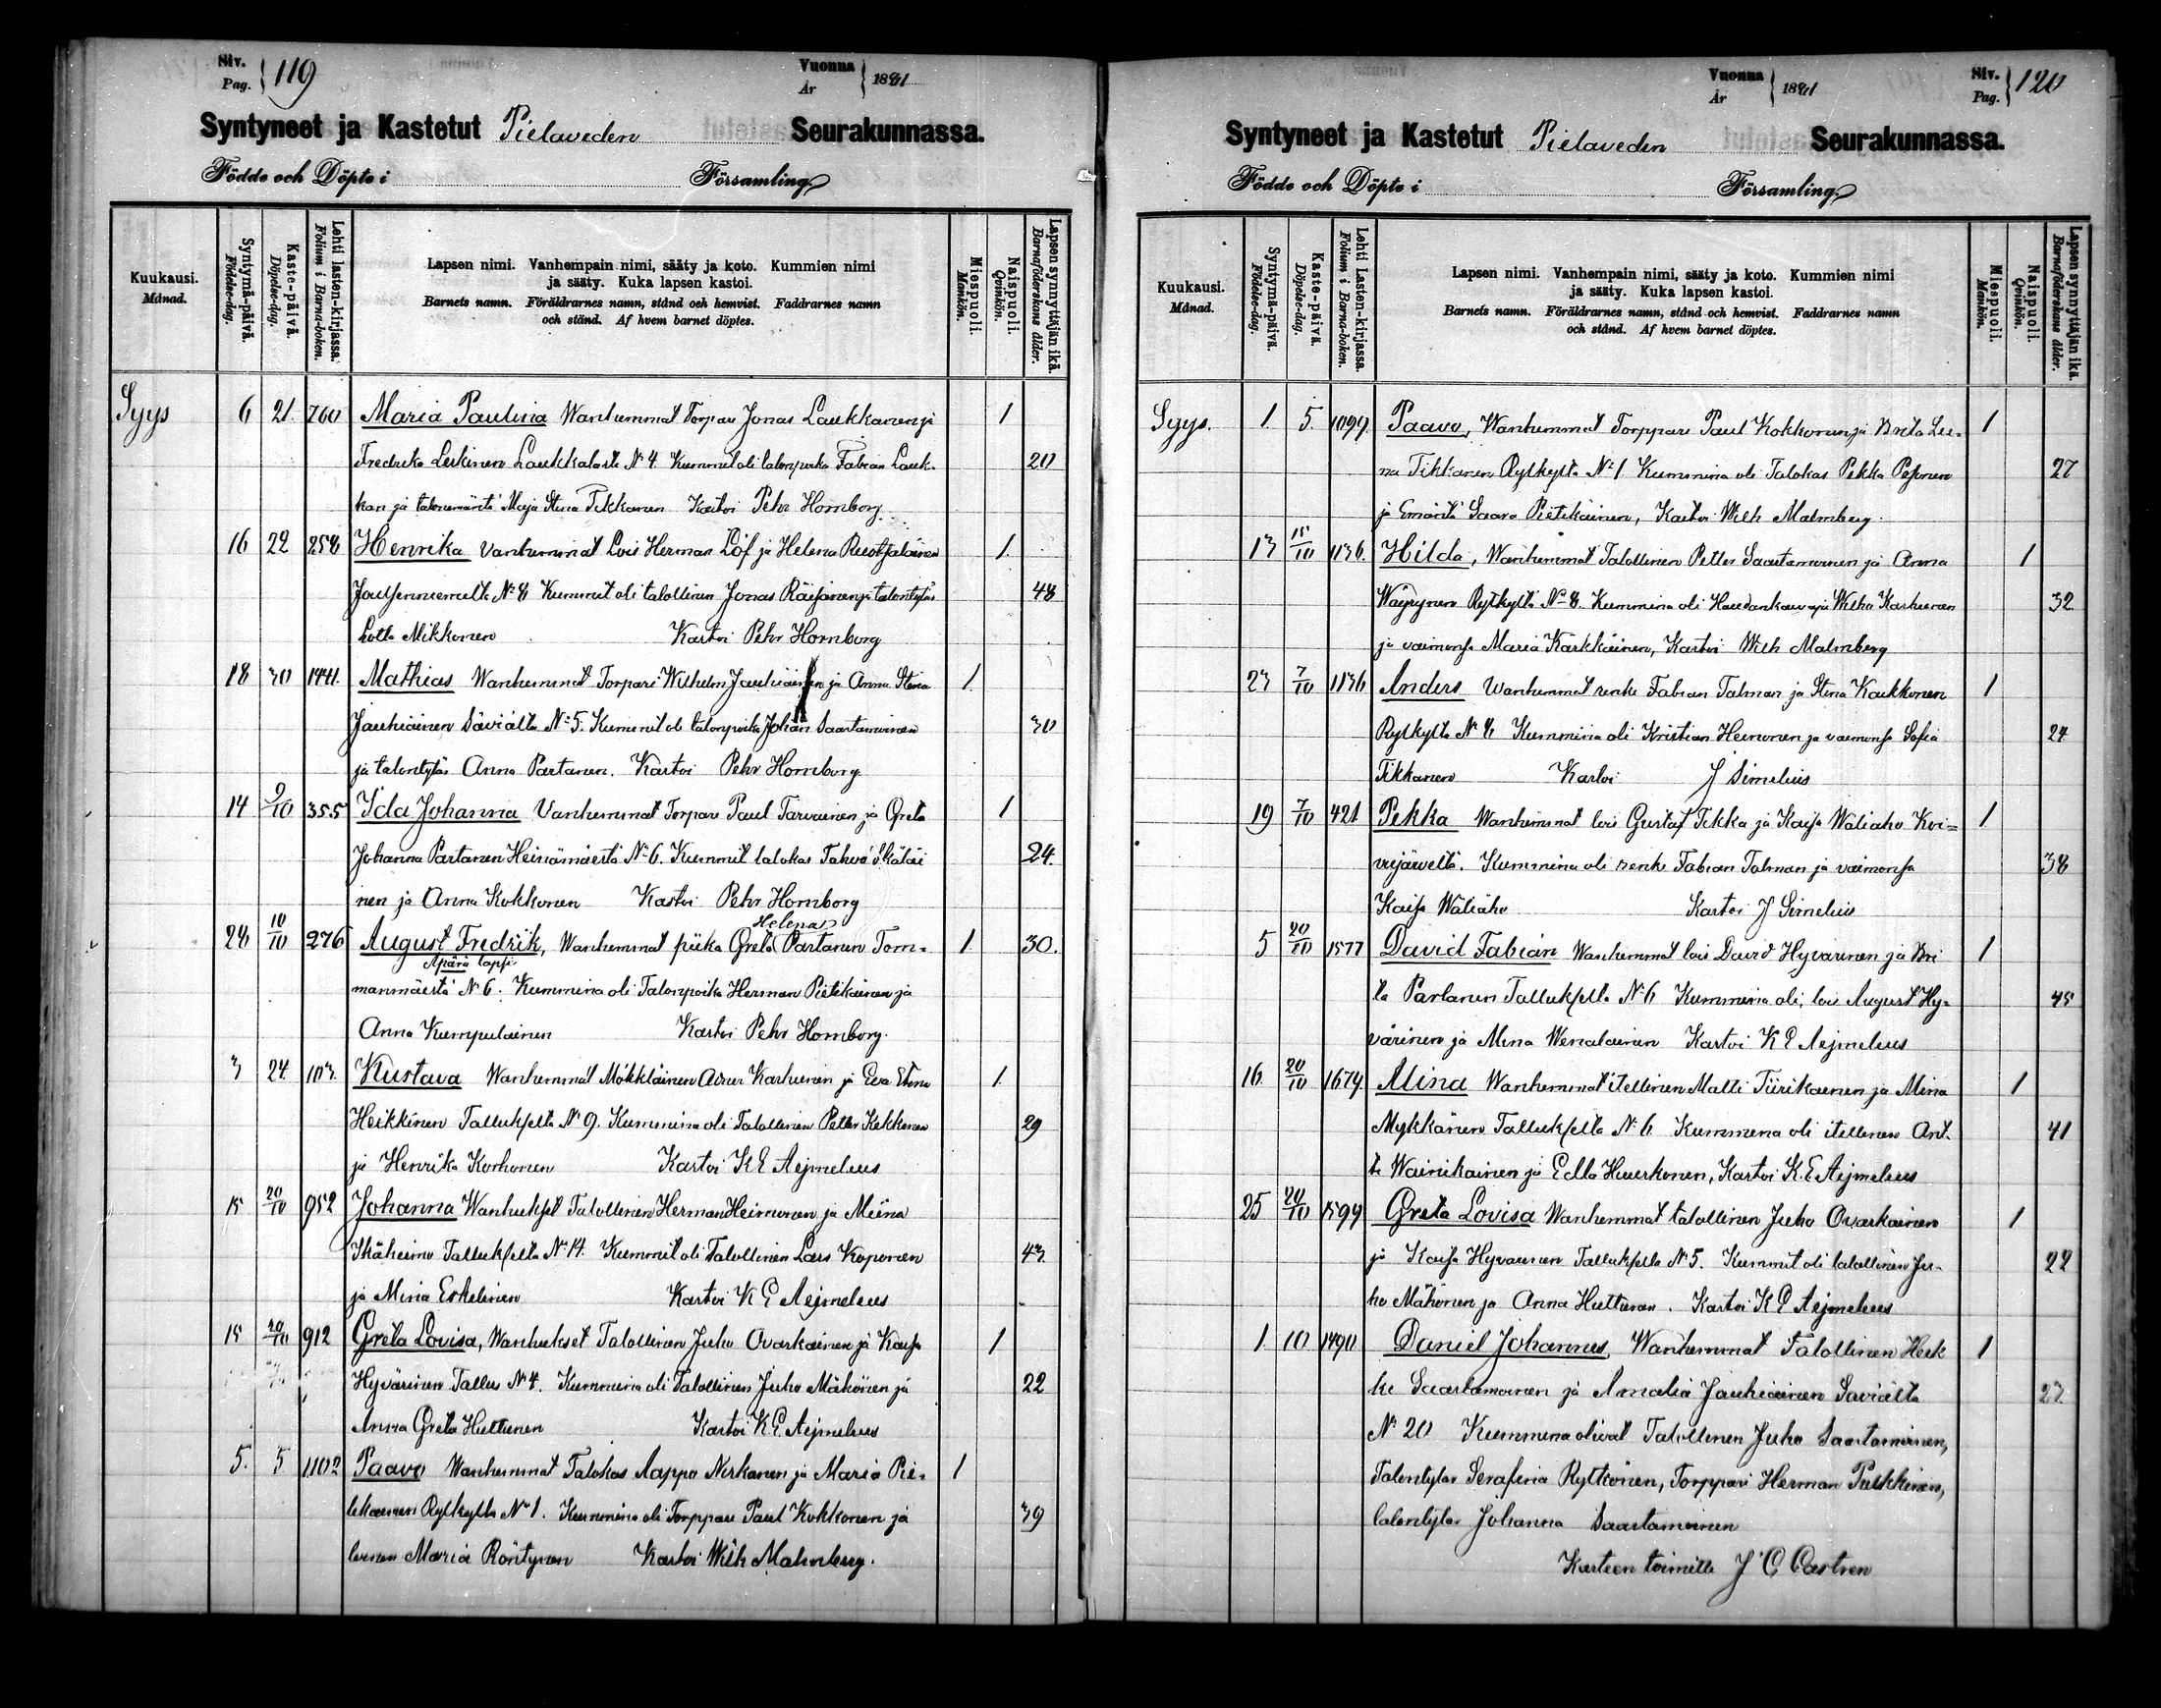 Siv. Pag. 119
Vuonna År 1881
Syntyneet ja Kastetut Pielaveden Seurakunnassa.
Födde och Döpte i Församling
Kuukausi. Månad.
Syntymä-päivä. Födelse-dag.
Kaste-päivä. Döpelse-dag.
Lehti lasten-kirjassa. Folium i Barna-boken.
Lapsen nimi. Vanhempain nimi, sääty ja koto. Kummien nimi
ja sääty. Kuka lapsen kastoi.
Barnets namn. Föräldrarnes namn, stånd och hemvist. Faddrarnes namn
och stånd. Af hvem barnet döptes.
Miespuoli. Mankön.
Naispuoli. Qvinkön.
Lapsen synnyttäjän ikä. Barnaföderskans ålder.
Syys 6 21. 760 Maria Paulina Wanhemmat Torpari Jonas Laukkanen ja 1
Fredrika Leskinen Laukkalasta No 4. Kummit oli talonpoika Fabian Lauk- 20
kan ja talonemäntä Maja Stina Tikkanen Kastoi Pehr Hornborg.
16 22 258 Henrika Vanhemmat Lois Herman Löf ja Helena Ruotsalainen 1.
No 8 Kummit oli talollinen Jonas Räisänen ja talontytär 48
Lotta Mikkonen Kastoi Pehr Hornborg
18 30 1441. Mathias Wanhemmat Torpari Wilhelm Jauhiainen ja Anna Stina 1.
Jauhiainen Säviältä No 5. Kummit oli talonpoika Johan Saastamoinen 30
ja talontytär Anna Partanen. Kastoi Pehr Hornborg
14 9/10 355 Ida Johanna Vanhemmat Torpari Paul Tarvainen ja Greta 1
Johanna Partanen Heinämäestä No 6. Kummit talokas Tahvo 24.
nen ja Anna Kokkonen Kastoi Pehr Hornborg
Helena
28 10/10 276 August Fredrik, Wanhemmat piika Greta Partanen Tom- 1. 30.
Äpärä lapsi
manmäestä No 6. Kummina oli Talonpoika Herman Pietikäinen ja
Anna Kumpulainen Kastoi Pehr Hornborg.
3 24 103. Kustava Wanhemmat Mökkiläinen Karhunen ja Eva Stina 1.
Heikkinen Tallukselta No 9. Kummina oli Talollinen Petter Kekkonen 29
ja Henrika Korhonen Kastoi K E Aejmelæus
15 20/10 952 Johanna Wanhukset Talollinen Herman Heimonen ja Miina
Tallukselta No 14. Kummit oli Talollinen Lars Koponen 43.
ja Mina Eskelinen Kastoi K E Aejmelæus
15 20/10 912 Greta Lovisa, Wanhukset Talollinen Juho Ovaskainen ja Kaisa 1
Hyvärinen Tallus No 4. Kummina oli Talollinen Juho Mähönen ja 22
Anna Greta Huttunen Kastoi K. E. Aejmelæus
5. 5 1102 Paavo Wanhemmat Talokas Aappo Niskanen ja Maria Pie- 1
tikainen Rytkyltä No 1. Kummina oli Torppari Paul Kokkonen ja 39
Maria Röntynen Kastoi Wilh Malmberg.
Vuonna År 1881
Siv. Pag. 120
Syntyneet ja Kastetut Pielaveden Seurakunnassa.
Födde och Döpte i Församling.
Kuukausi. Månad.
Syntymä-päivä. Födelse-dag.
Kaste-päivä. Döpelse-dag.
Lehti Lasten-kirjassa. Folium i Barna-boken.
Lapsen nimi. Vanhempain nimi, sääty ja koto. Kummien nimi
ja sääty. Kuka lapsen kastoi.
Barnets namn. Föräldrarnes namn, stånd och hemvist. Faddrarnes namn
och stånd. Af hvem barnet döptes.
Miespuoli. Mankön.
Naispuoli. Qvinkön.
Lapsen synnyttäjän ikä. Barnaföderskans ålder.
Syys. 1. 5. 1099 Paavo, Wanhemmat Torppari Paul Kokkonen ja Brita Lee- 1
na Tikkanen Rytkyltä No 1 Kummina oli Talokas Pekka Peponen 27
ja Emäntä Saara Pietikäinen, Kastoi Wilh Malmberg.
13 15/10 1136. Hilda, Wanhemmat Talollinen Petter Saastamoinen ja Anna 1
Wäyrynen Rytkyltä No 8. Kummina oli Haudankaivaja Wilho Karhunen 32
ja vaimonsa Maria Kärkkäinen, Kastoi Wilh Malmberg
23 7/10 1136 Anders Wanhemmat renki Fabian Talman ja Stina Kaukkonen 1
Rytkyltä No 8 Kummina oli Kristian Heinonen ja vaimonsa Sofia 24
Tikkanen Kastoi J Simelius
19 7/10 421 Pekka Wanhemmat lois Gustaf Tikka ja Kaisa Waliaho Koi= 1.
vujärveltä. Kummina oli renki Fabian Talman ja vaimonsa 38
Kaisa Waliaho Kastoi J Simelius
5 20/10 1577 David Fabian Wanhemmat lois David Hyvärinen ja Bri 1
ta Partanen Tallukselta No 6 Kummina oli, lois August Hy- 45
värinen ja Mina Wenalainen Kastoi K E Aejmelæus
16. 20/10 1674 Alina Wanhemmat itellinen Matti Tiirikainen ja Mina 1
Mykkänen Tallukselta No 6 Kummina oli itellinen Ant- 41
ti Wainikainen ja Edla Huuskonen, Kastoi K. E Aejmelæus
25 20/10 1599 Greta Lovisa Wanhemmat talollinen Juho Ovaskainen 1
ja Kaisa Hyvärinen Tallukselta No 5. Kummit oli talollinen Ju- 22
ho Mähönen ja Anna Huttunen. Kastoi K E Aejmelæus
1. 10 1490 Daniel Johannes, Wanhemmat Talollinen Heik 1
ki Saastamoinen ja Amalia Jauhiainen Saviältä 27.
No 20 Kummina olivat Talollinen Juho Saastamoinen,
Talontytär Serafina Rytkönen, Torppari Herman Pulkkinen,
talontytär Johanna Saastamoinen
Kasteen toimitti J C Castren